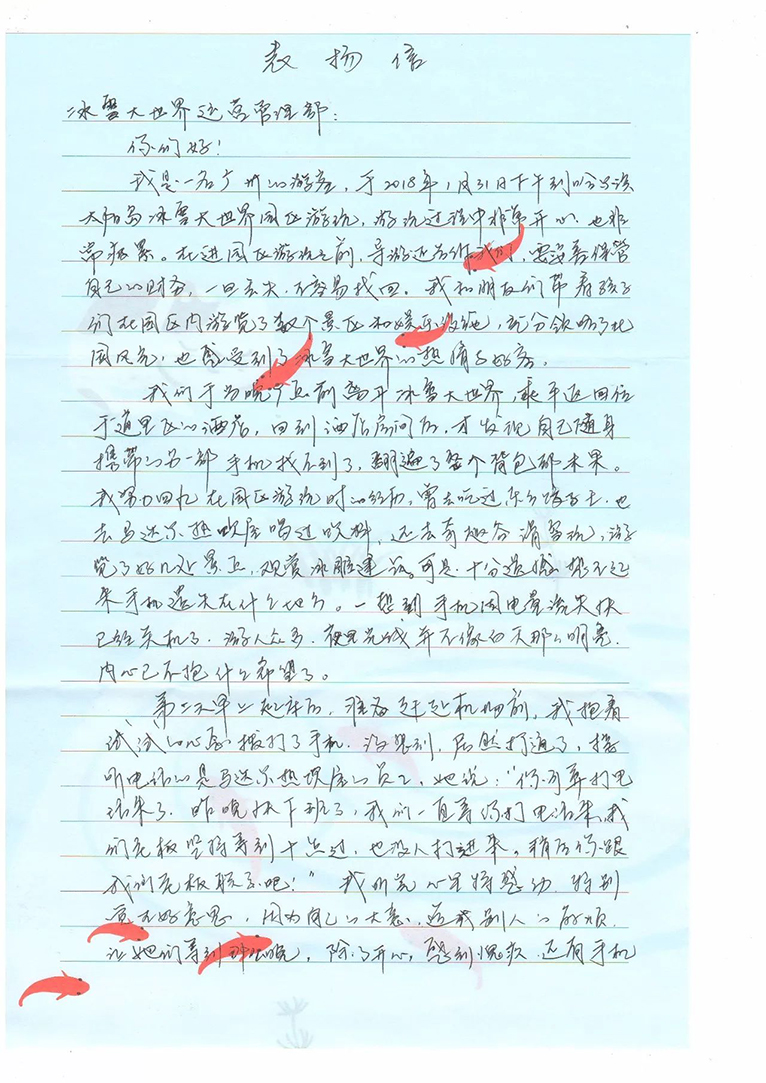 表扬信
冰雪大世界运营管理部:
你们好!
我是一名广州的游客,于2018年1月31日下午到哈尔滨
太阳岛冰雪大世界园区游玩,游玩过程中非常开心,也非
常疲累。在进园区游玩之前,导游还告诉我们,要妥善保管
自己的财务,一旦丢失,不容易找回。我和朋友们带着孩子
们在园区内游览了数个景区和娱乐设施,充分领略了北
国风光,也感受到了冰雪大世界的热情与好客。
我们于当晚点前离开冰雪大世界,乘车返回位
于道里区的酒店,回到酒店房间后,才发现自己随身
携带的另一部手机找不到了,翻遍了整个背包都未果。
我努力回忆在园区游玩时的经历,曾去吃过东方饺子王,也
去马迭尔热饮屋喝过饮料,还去奇趣谷滑雪玩,游
览了好几处景点,观赏冰雕建筑。可是,十分遗憾,想不起
来手机遗失在什么地方。一想到手机因电量流失快
已经关机了,游人众多,夜里光线并不像白天那么明亮,
内心已不抱什么希望了。
第二天早上起床后,准备赶赴机场前,我抱着
试试的心态拨打了手机,没想到,居然打通了,接
听电话的是马迭尔热饮屋的员工,她说:“你可算打电
话来了,昨晚快下班了,我们一直等你打电话来,我
们老板坚持等到十点过,也没人打进来。稍后你跟
我们老板联系吧!”我听完心里特感动,特别
觉不好意思,因为自己的大意,造成别人的麻烦,
让她们等到那么晚,除了开心,感到愧疚,还有手机